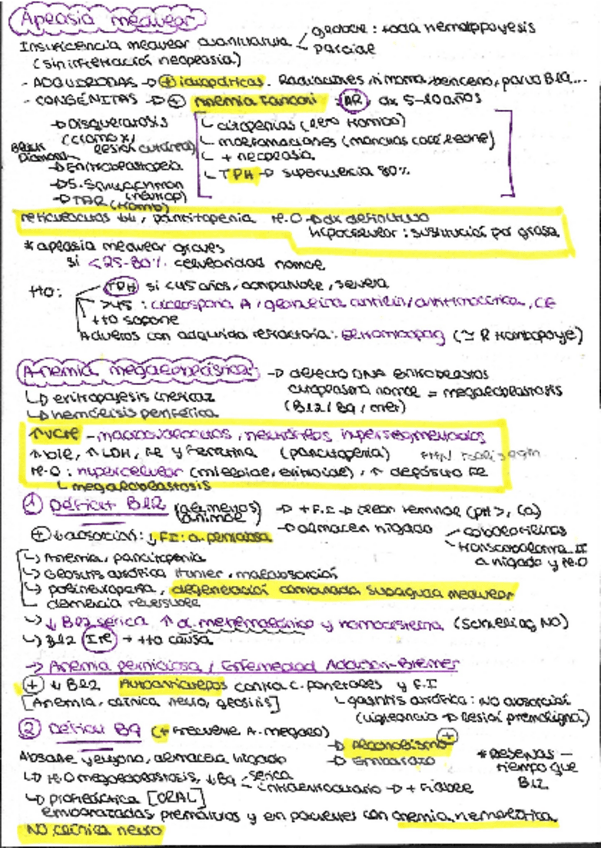 Aplasia medular
Insuficiencia medular cuantitativa
global: toda hematopoyesis
parcial
(sin infiltración neoplasia)
- ADQUIRIDAS → (+) idiopáticas. Radiaciones, timoma, benceno, parvo B19...
- CONGÉNITAS → (+) Anemia Fanconi: (AR) dx 5-10 años
→ Disqueratosis
(cromo X, lesión cutánea)
Black Diamond → Eritroblastopenia
→ S. Schwachman
(neutrop)
→ TAR (trombo)
citopenias (1ero trombo)
malformaciones (manchas café leche)
+ neoplasia
TPH → supervivencia 80%
reticulocitos ↓↓, pancitopenia M.O → dx definitivo
hipocelular: sustitución por grasa
* aplasia medular grave
si < 25-30% celularidad normal
tto:
TPH si < 45 años, compatible, severa
> 45: ciclosporina A, globulina antilin/antitimocítica, CE
tto soporte
Adultos con adquirida refractaria: Eltrombopag (≃ R trombopoye)
Anemia megaloblástica
→ defecto DNA eritroblastos
citoplasma normal = megaloblastosis
(B12/B9/mtx)
→ eritropoyesis ineficaz
→ hemólisis periférica
↑VCM - macroovalocitos, neutrófilos hipersegmentados
↑ bil, ↑ LDH, Fe y ferritina (pancitopenia)
M.O: hipercelular (mieloide, eritroide), ↑ depósito Fe
megaloblastosis
① Déficit B12 (alimentos animal) → + F.I → íleon terminal (pH >, Ca)
→ almacén hígado
cobalofilinas
transcobalamina II
a hígado y M.O
(+) ↓ absorción: ↓ F.I: a. perniciosa
→ Anemia, pancitopenia
→ Glositis atrófica Hunter, malabsorción
→ polineuropatía, degeneración combinada subaguda medular
demencia reversible
→ ↓ B12 sérica ↑ a. metilmalónico y homocisteína (Schilling NO)
→ B12 (IM) + tto causa
→ Anemia perniciosa / Enfermedad Addison-Biermer
(+) ↓ B12 Autoanticuerpos contra c. parietales y F.I
[Anemia, clínica neuro, glositis]
gastritis atrófica: NO absorción
(vigilancia → lesión premaligna)
② Déficit B9 (+ frecuente A. megalo)
→ Alcoholismo (+)
→ Embarazo
* Reservas -
tiempo que
B12
Absorbe yeyuno, almacén hígado
→ M.O megaloblastosis, ↓ B9
sérica
intraeritrocitario → + fiable
→ profiláctica [ORAL]
embarazadas, prematuros y en pacientes con anemia hemolítica
NO clínica neuro